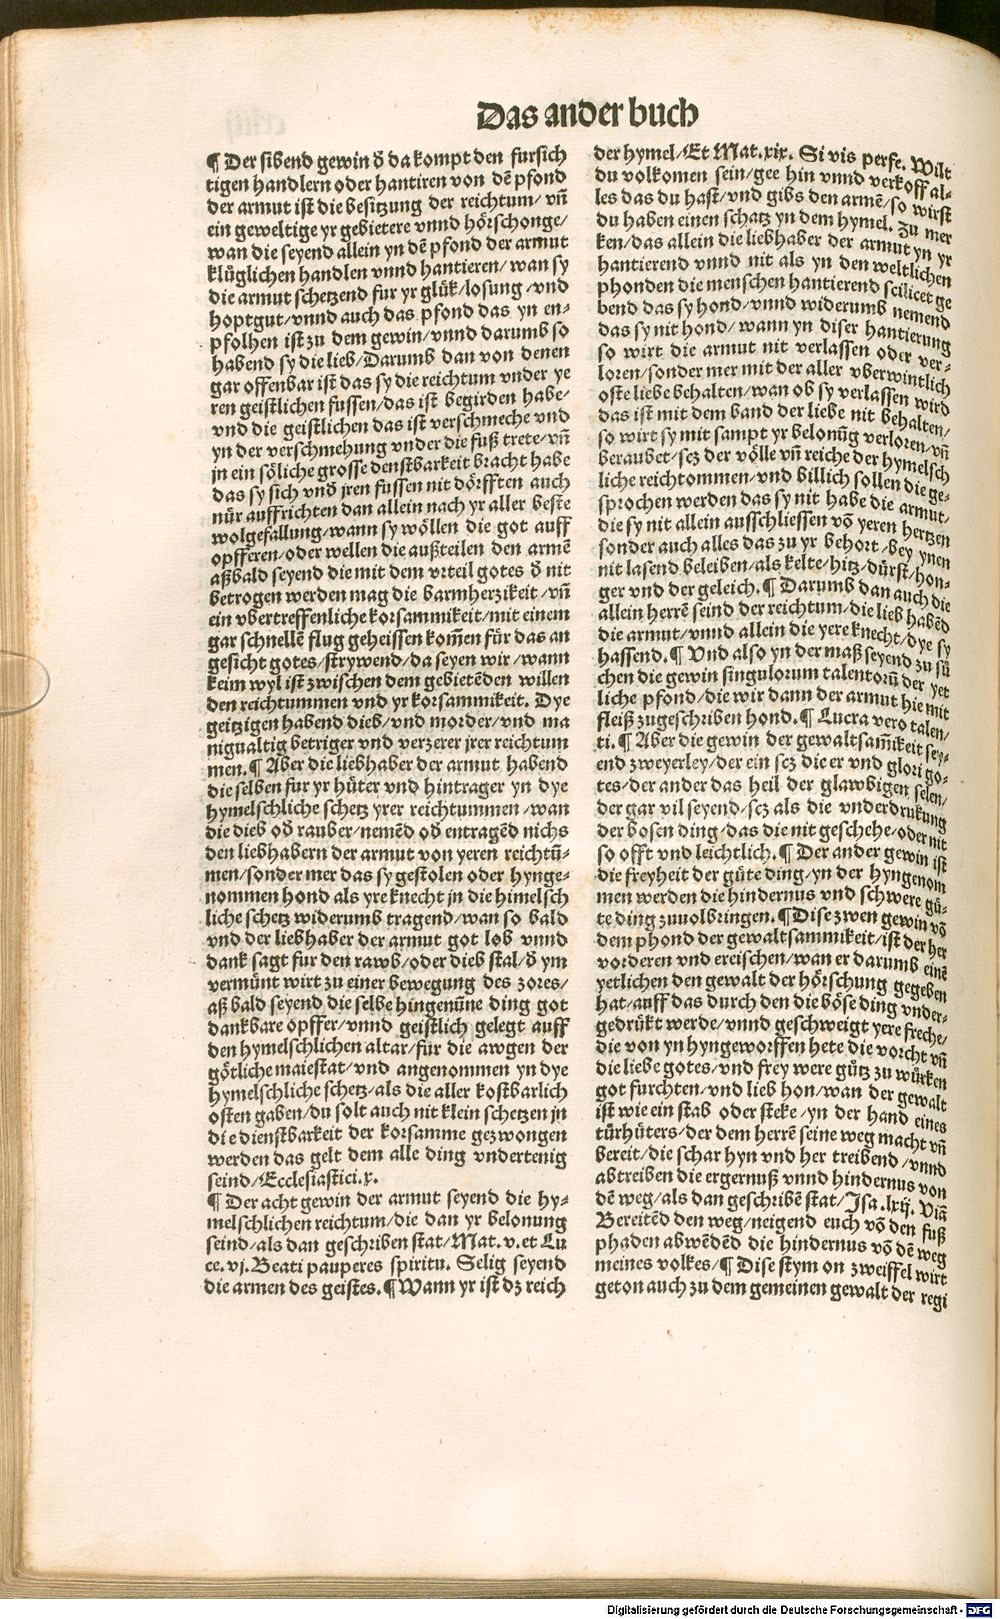 Das ander buch
¶ Der sibend gewin ð da kompt den fursich
tigen handlern oder hantiren von dē pfond
der armut ist die besitzung der reichtum/ vñ
ein geweltige yr gebietere vnnd hörschonge/
wan die seyend allein yn dē pfond der armut
klüglichen handlen vnnd hantieren/ wan sy
die armut schetzend fur yr glük/losung/vnd
hoptgut/vnnd auch das pfond das yn en-
pfolhen ist zu dem gewin/vnnd darumb so
habend sy die lieb/Darumb dan von denen
gar offenbar ist das sy die reichtum vnder ye
ren geistlichen fussen/das ist begirden habe-
vnd die geistlichen das ist verschmeche vnd
yn der verschmehung vnder die fuß trete/vñ
jn ein söliche grosse denstbarkeit bracht habe
das sy sich vnð jren fussen nit dörfften auch
nür auffrichten dan allein nach yr aller beste
wolgefallung/wann sy wöllen die got auff
opfferen/oder wellen die außteilen den armē
aßbald seyend die mit dem vrteil gotes ð nit
betrogen werden mag die barmherzikeit/vñ
ein vbertreffenliche korsammikeit/mit einem
gar schnellē flug geheissen kom̄en für das an
gesicht gotes/strywend/da seyen wir/wann
keim wyl ist zwischen dem gebietēden willen
den reichtummen vnd yr korsammikeit. Dye
geitzigen habend dieb/vnd morder/vnd ma
nigualtig betriger vnd verzerer jrer reichtum
men. ¶ Aber die liebhaber der armut habend
die selben fur yr hüter vnd hintrager yn dye
hymelschliche schetz yrer reichtummen/wan
die dieb oð rauber/nemēd oð entragēd nichs
den liebhabern der armut von yeren reichtū-
men/sonder mer das sy gestolen oder hynge-
nommen hond als yre knecht jn die himelsch
liche schetz widerumb tragend/wan so bald
vnd der liebhaber der armut got lob vnnd
dank sagt fur den rawb/oder dieb stal/ð ym
vermünt wirt zu einer bewegung des zores/
aß bald seyend die selbe hingenūne ding got
dankbare opffer/vnnd geistlich gelegt auff
den hymelschlichen altar/für die awgen der
götliche maiestat/vnd angenommen yn dye
hymelschliche schetz/als die aller kostbarlich
osten gaben/du solt auch nit klein schetzen jn
die dienstbarkeit der korsamme gezwongen
werden das gelt dem alle ding vndertenig
seind/Ecclesiastici.x.
¶ Der acht gewin der armut seyend die hy-
melschlichen reichtum/die dan yr belonung
seind/als dan geschriben stat/Mat.v.et Lu
ce.vj.Beati pauperes spiritu. Selig seyend
die armen des geistes. ¶ Wann yr ist dz reich
der hymel/Et Mat.xix. Si vis perfe. Wilt
du volkomen sein/gee hin vnnd verkoff al-
les das du hast/vnd gibs den armē/so wirst
du haben einen schatz yn dem hymel. Zu mer
ken/das allein die liebhaber der armut yn yr
hantierend vnnd nit als yn den weltlichen
phonden die menschen hantierend scilicet ge
bend das sy hond/vnnd widerumb nemend
das sy nit hond/wann yn diser hantierung
so wirt die armut nit verlassen oder ver-
loren/sonder mer mit der aller vberwintlich
oste liebe behalten/wan ob sy verlassen wird
das ist mit dem band der liebe nit behalten/
so wirt sy mit sampt yr belonūg verloren/vñ
beraubet/scz der völle vñ reiche der hymelsch
liche reichtommen/vnd billich sollen die ge-
sprochen werden das sy nit habe die armut/
die sy nit allein ausschliessen vō yeren hertzen
sonder auch alles das zu yr behort/bey ynen
nit lasend beleiben/als kelte/hitz/dürst/hon-
ger vnd der geleich. ¶ Darumb dan auch die
allein herrē seind der reichtum/die lieb habēd
die armut/vnnd allein die yere knecht/dye sy
hassend. ¶ Vnd also yn der maß seyend zu sū
chen die gewin singulorum talentorū der yet
liche pfond/die wir dann der armut hie mit
fleiß zugeschriben hond. ¶ Lucra vero talen/
ti. ¶ Aber die gewin der gewaltsam̄ikeit sey-
end zweyerley/der ein scz die er vnd glori go-
tes/der ander das heil der glawbigen selen/
der gar vil seyend/scz als die vnderdrukung
der bosen ding/das die nit geschehe/oder nit
so offt vnd leichtlich. ¶ Der ander gewin ist
die freyheit der güte ding/yn der hyngenom
men werden die hindernus vnd schwere gü-
te ding zuuolbringen. ¶ Dise zwen gewin vō
dem phond der gewaltsammikeit/ist der her
vorderen vnd ereischen/wan er darumb einē
yetlichen den gewalt der hörschung gegeben
hat/auff das durch den die böse ding vnder-
gedrükt werde/vnnd geschweigt yere freche/
die von yn hyngeworffen hete die vorcht vñ
die liebe gotes/vnd frey were gütz zu würken
got furchten/vnd lieb hon/wan der gewalt
ist wie ein stab oder steke/yn der hand eines
türhüters/der dem herrē seine weg macht vñ
bereit/die schar hyn vnd her treibend/vnnd
abtreiben die ergernuß vnnd hindernus von
dē weg/als dan geschribē stat/Jsa.lxij. Viā
Bereitēd den weg/neigend euch vō den fuß
phaden abwēdēd die hindernus vō dē weg
meines volkes/ ¶ Dise stym on zweiffel wirt
geton auch zu dem gemeinen gewalt der regi
Digitalisierung gefördert durch die Deutsche Forschungsgemeinschaft - DFG